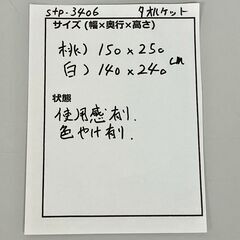 stp.3406 タオルケット
サイズ (幅×奥行×高さ)
桃) 150×250
白) 140×240 cm
状態
使用感有り.
色やけ有り.